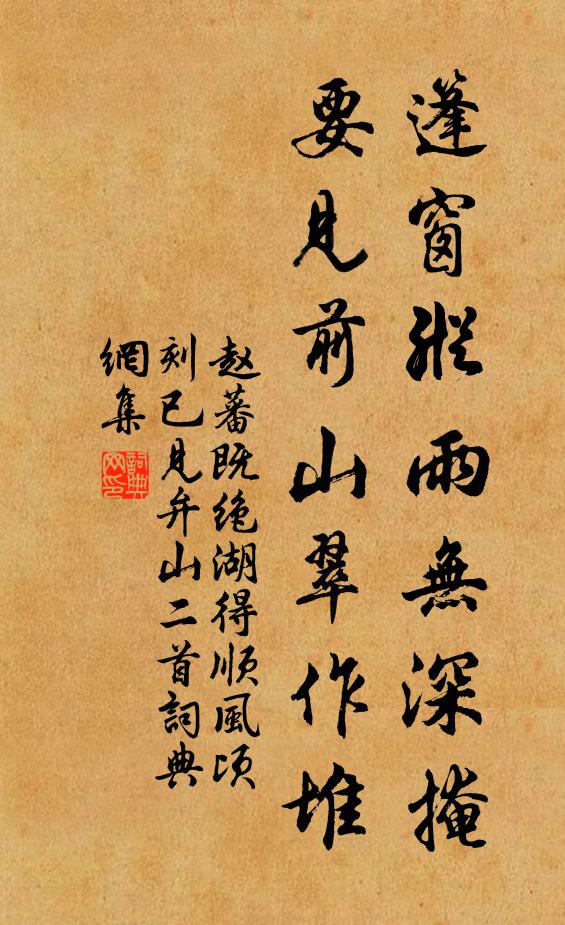 蓬窗縱雨無深掩
要見前山翠作堆
趙蕃既絶湖得順風頃
刻已見弁山二首詞典
網集
詞典網印